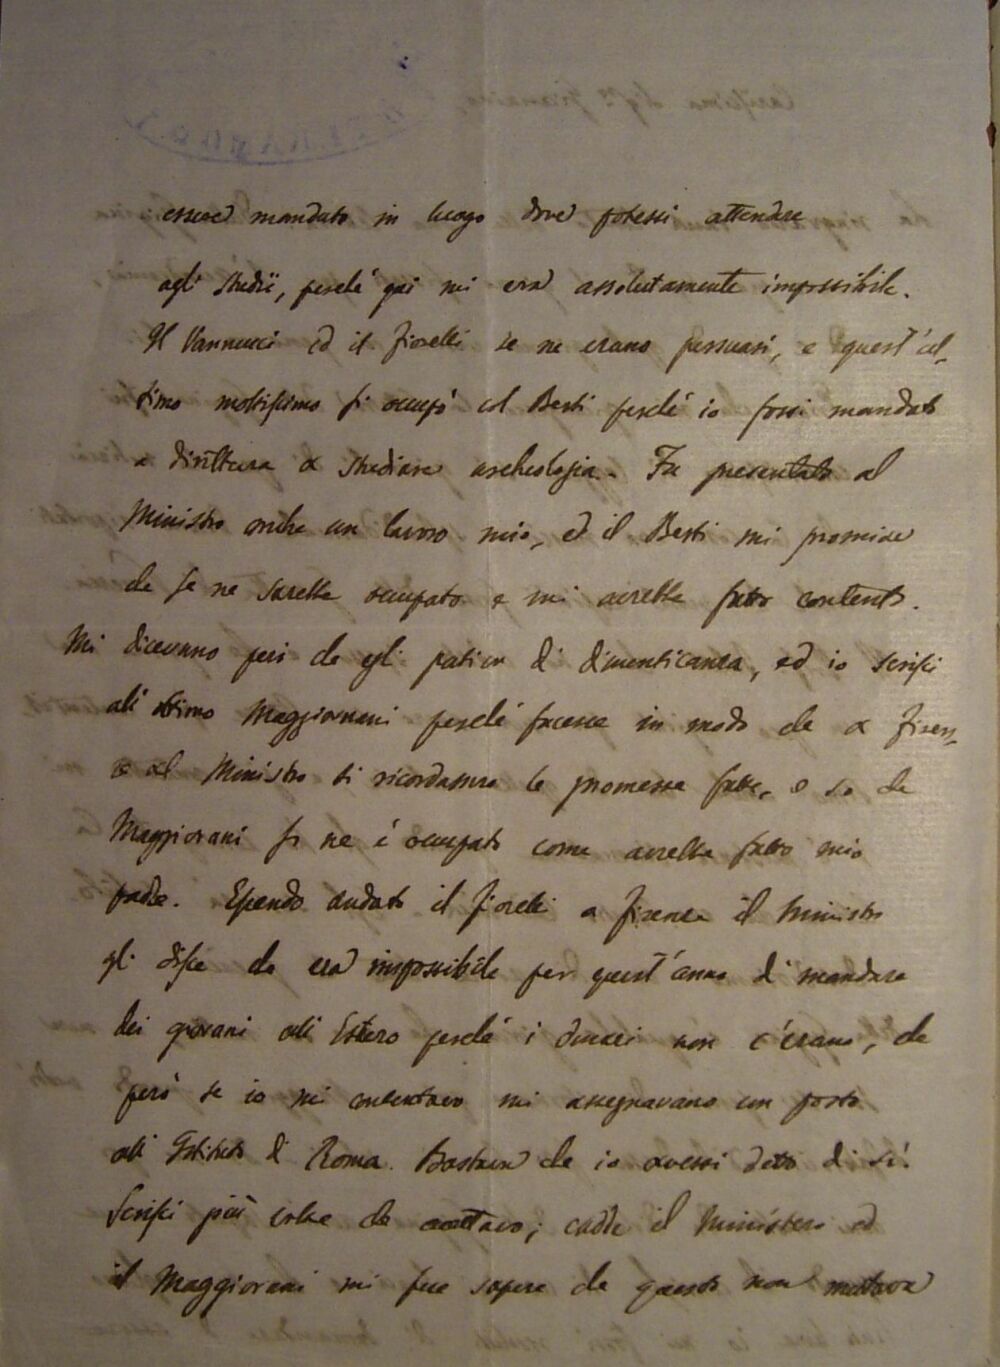 essere mandato in luogo dove potessi attendere
agli studii, perché qui mi era assolutamente impossibile.
Il Vannucci ed il Fiorelli se ne erano persuasi, e quest'ul-
timo moltissimo si occupò col Berti perché io fossi mandato
a dirittura a studiare archeologia. Fu presentato al
Ministro anche un lavoro mio, ed il Berti mi promise
che se ne sarebbe occupato e mi avrebbe fatto contento.
Mi dicevano però che egli pativa di dimenticanza, ed io scrissi
all'ottimo Maggiorani perché facesse in modo che a Firen-
ze al Ministro si ricordassero le promesse fatte, e so che
Maggiorani se ne è occupato come avrebbe fatto mio
padre. Essendo andato il Fiorelli a Firenze il Ministro
gli disse che era impossibile per quest'anno di mandare
dei giovani all'Estero perché i denari non c'erano, che
però se io mi contentavo mi assegnavano un posto
all'Istituto di Roma. Bastava che io avessi detto di sì.
Scrissi più volte che accettavo; cadde il Ministero ed
il Maggiorani mi fece sapere che questo non mutava